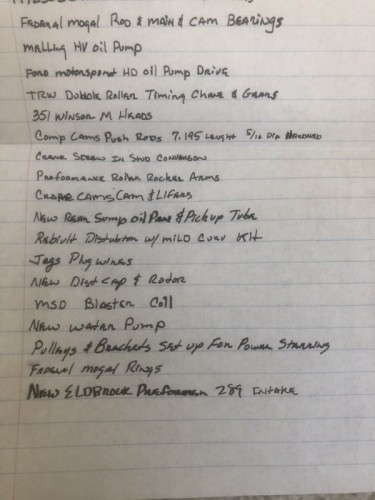 Federal mogal Rod & main & cam Bearings
Malling HV oil Pump
Ford motorsport HD oil Pump Drive
TRW Dubble Roller Timing Chane & Gears
351 Winsor M Heads
Comp Cams Push Rods 7.195 Lenght 5/16 Dia Hardned
Crane Screw In Stud Convorson
Preformance Roller Rocker Arms
Crane Cams Cam & Lifters
New Rear Sump oil Pane & Pickup Tube
Rebiult Distubtor w/ mild Curv Kit
Jegs Plug wires
New Dist cap & Rotor
MSD Blaster Coil
New water Pump
Pulleys & Brackets Set up For Power Steering
Federal mogal Rings
New Eldbrock Preformer 289 Intake